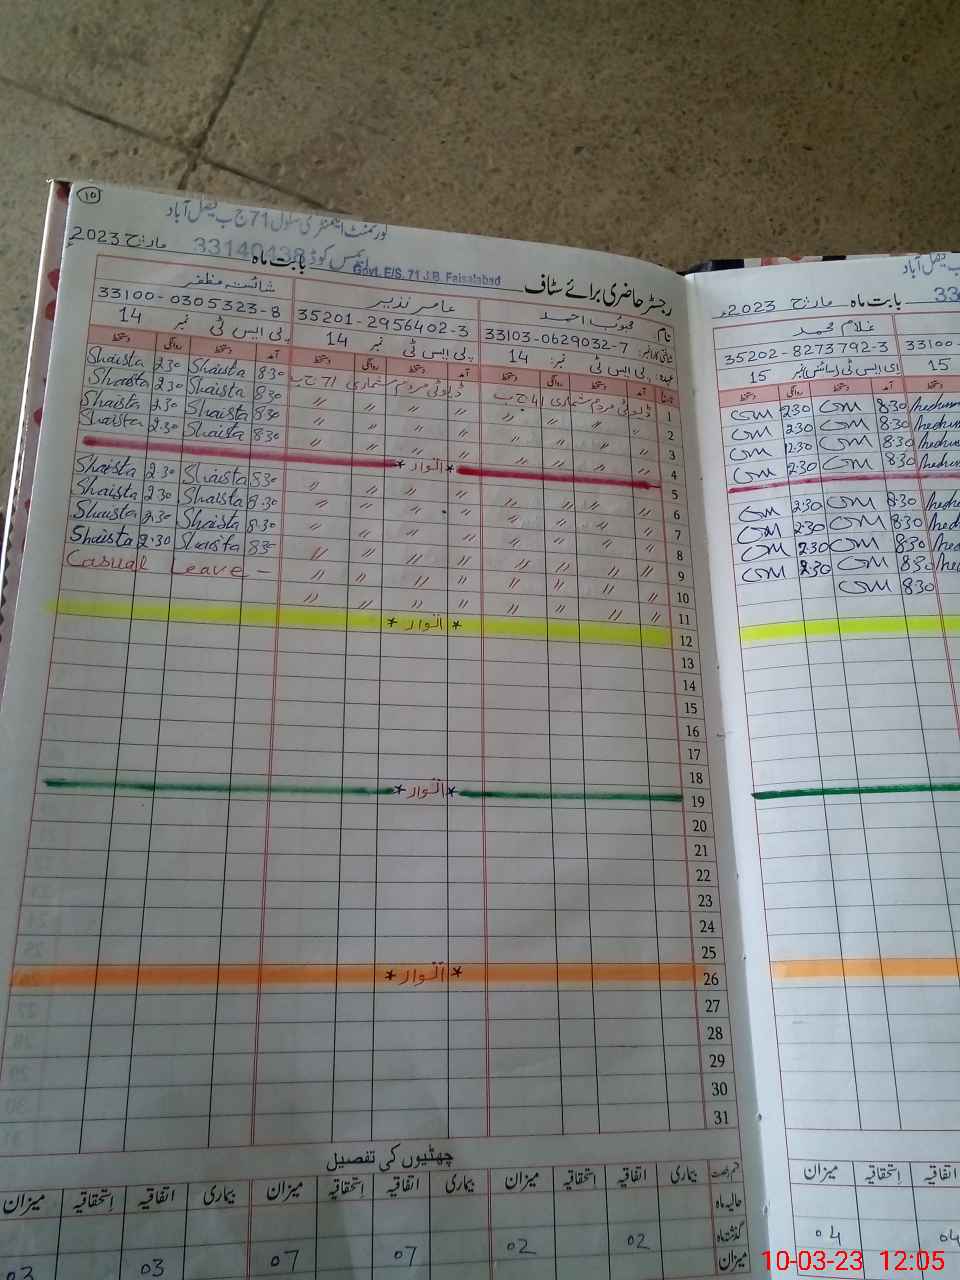 10
گورنمنٹ ایلیمنٹری سکول 71 ج ب فیصل آباد
ایمس کوڈ 33140138
Govt. E/S. 71 J.B. Faisalabad
رجسٹر حاضری برائے سٹاف بابت ماہ مارچ 2023
نام محبوب احمد عامر نذیر شائستہ مظفر
شناختی کارڈ نمبر: 33103-0629032-7 35201-2956402-3 33100-0305323-8
عہدہ پی ایس ٹی نمبر: 14 پی ایس ٹی نمبر 14 پی ایس ٹی نمبر 14
آمد دستخط روانگی دستخط آمد دستخط روانگی دستخط آمد دستخط روانگی دستخط
1 ڈیوٹی مردم شماری 41 ج ب ڈیوٹی مردم شماری 71 ج ب 8:30 Shaista 2:30 Shaista
2 〃 〃 〃 〃 〃 〃 〃 〃 8:30 Shaista 2:30 Shaista
3 〃 〃 〃 〃 〃 〃 〃 〃 8:30 Shaista 2:30 Shaista
4 〃 〃 〃 〃 〃 〃 〃 〃 8:30 Shaista 2:30 Shaista
5 * اتوار *
6 〃 〃 〃 〃 〃 〃 〃 〃 8:30 Shaista 2:30 Shaista
7 〃 〃 〃 〃 〃 〃 〃 〃 8:30 Shaista 2:30 Shaista
8 〃 〃 〃 〃 〃 〃 〃 〃 8:30 Shaista 2:30 Shaista
9 〃 〃 〃 〃 〃 〃 〃 〃 8:30 Shaista 2:30 Shaista
10 〃 〃 〃 〃 〃 〃 〃 〃 Casual Leave -
11 〃 〃 〃 〃 〃 〃 〃 〃
12 * اتوار *
13
14
15
16
17
18
19 * اتوار *
20
21
22
23
24
25
26 * اتوار *
27
28
29
30
31
چھٹیوں کی تفصیل
قسم رخصت بیماری اتفاقیہ استحقاقیہ میزان بیماری اتفاقیہ استحقاقیہ میزان بیماری اتفاقیہ استحقاقیہ میزان
حالیہ ماہ
گذشتہ ماہ 02 02 07 07 03 03
میزان
بابت ماہ مارچ 2023
غلام محمد
35202-8273792-3 33100-
15 15
آمد دستخط روانگی دستخط
8:30 GM 2:30 GM
8:30 GM 2:30 GM
8:30 GM 12:30 GM
8:30 GM 2:30 GM
8:30 GM 2:30 GM
8:30 GM 2:30 GM
8:30 GM 2:30 GM
8:30 GM 2:30 GM
8:30 GM
اتفاقیہ استحقاقیہ میزان
04 04
10-03-23 12:05